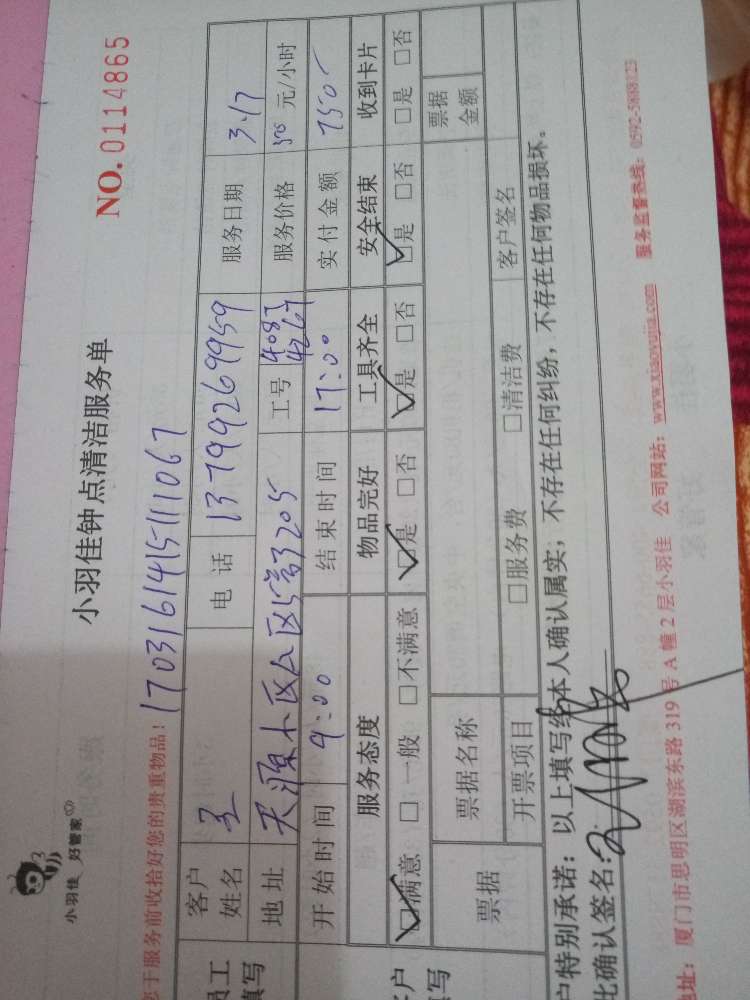 小羽佳 好管家
小羽佳钟点清洁服务单
NO. 0114865
于服务前收拾好您的贵重物品!
17031614151111061
客户姓名 王 电话 13799269959 服务日期 3.17
地址 工号 4083 服务价格 元/小时
开始时间 9:00 结束时间 17:00 实付金额 750
服务态度 物品完好 工具齐全 安全结束 收到卡片
☑满意 □一般 □不满意 ☑是 □否 ☑是 □否 ☑是 □否 □是 □否
票据 票据名称 票据金额
开票项目 □服务费 □清洁费 客户签名
户特别承诺:以上填写经本人确认属实;不存在任何纠纷,不存在任何物品损坏。
此确认签名:
址:厦门市思明区湖滨东路 319 号 A 幢 2 层小羽佳 公司网站:www.xiaoyujia.com 服务监督热线:0592-5888123